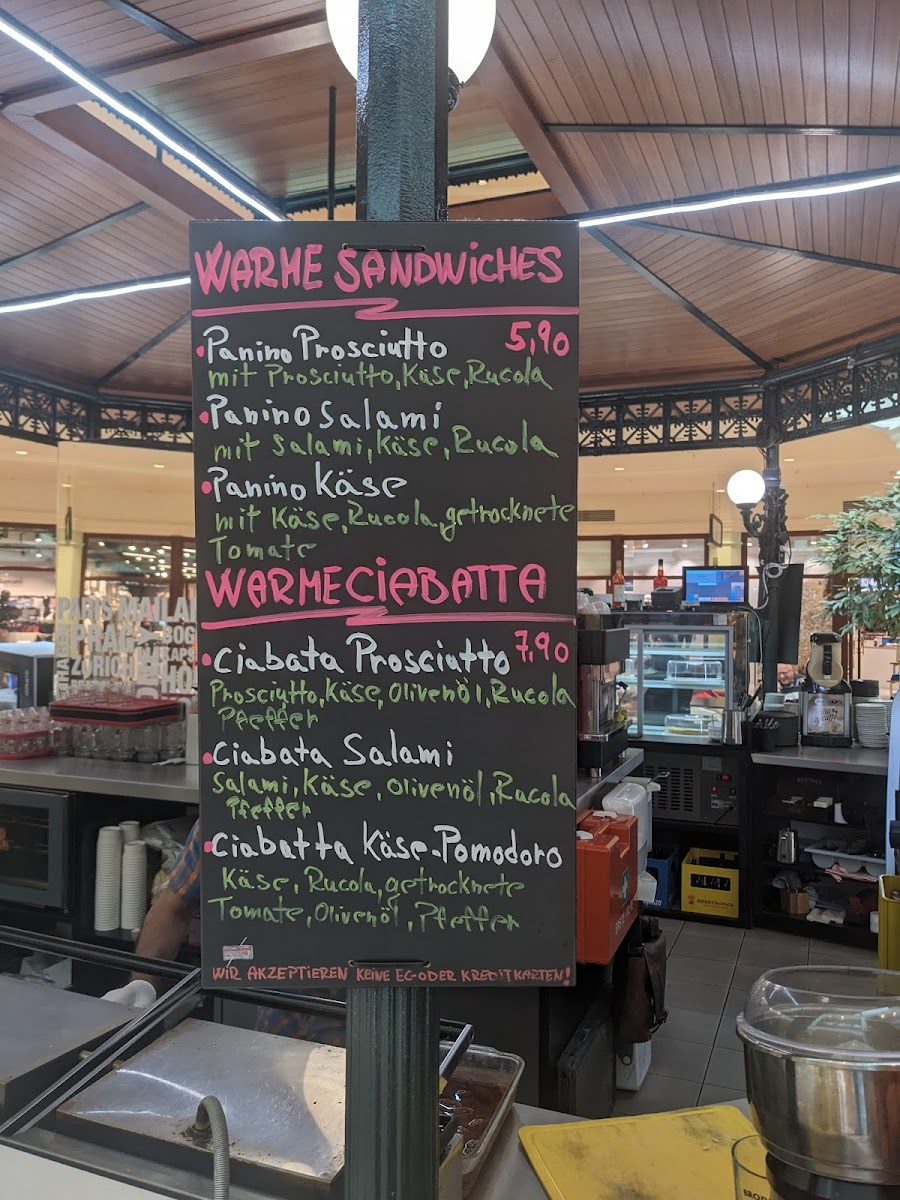 WARME SANDWICHES
Panino Prosciutto 5,90
mit Prosciutto, Käse, Rucola
Panino Salami
mit Salami, Käse, Rucola
Panino Käse
mit Käse, Rucola, getrocknete
Tomate
WARME CIABATTA
Ciabata Prosciutto 7,90
Prosciutto, Käse, Olivenöl, Rucola
Pfeffer
Ciabata Salami
Salami, Käse, Olivenöl, Rucola
Pfeffer
Ciabatta Käse-Pomodoro
Käse, Rucola, getrocknete
Tomate, Olivenöl, Pfeffer
WIR AKZEPTIEREN KEINE EC-ODER KREDITKARTEN!
PARIS MAILA
PRAG
ZÜRICH